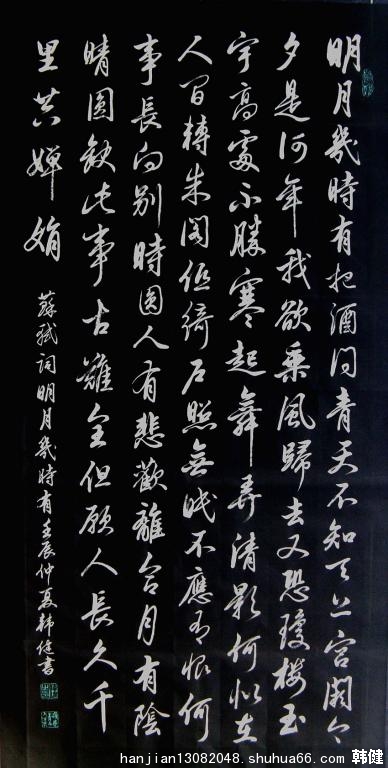 明月幾時有把酒问青天不知天上宫闕今
夕是何年我欲乘風歸去又恐瓊楼玉
宇高處不勝寒起舞弄清影何似在
人间轉朱阁低绮户照無眠不應有恨何
事長向别時圆人有悲歡離合月有陰
晴圆缺此事古難全但願人長久千
里共嬋娟
蘇軾词明月幾時有壬辰仲夏韩健書
hanjian13082048.shuhua66.com 韩健